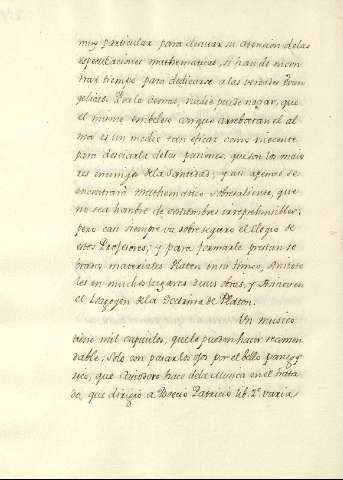 muy particular para desviar su atencion de las
especulaciones mathematicas, si han de encon
trar tiempo para dedicarse a las verdades Evan
gelicas. Por lo demas, nadie puede negar, que
el mismo embeleso con que arrebatan el al
ma es un medio tan eficaz como inocente
para desviarla de las pasiones, que son los maio
res enemigos de la Santidad; y asi apenas se
encontrará mathematico sobresaliente, que
no sea hombre de costumbres irreprehensibles;
pero casi siempre va sobre seguro el Elogio de
estos Profesores; y para formarle prestan so
brados materiales Platon en su Timeo, Aristote
les en muchos lugares de sus obras, y Alcinoo en
el Isagogen de la Doctrina de Platon.
Un musico
tiene mil capitulos, que le puedan hacer recomen
dable, solo con pasar los ojos por el bello panegy
rico, que Casiodoro hace de la Musica en el trata
do, que dirigió a Boecio Patricio lib. 2º. varia